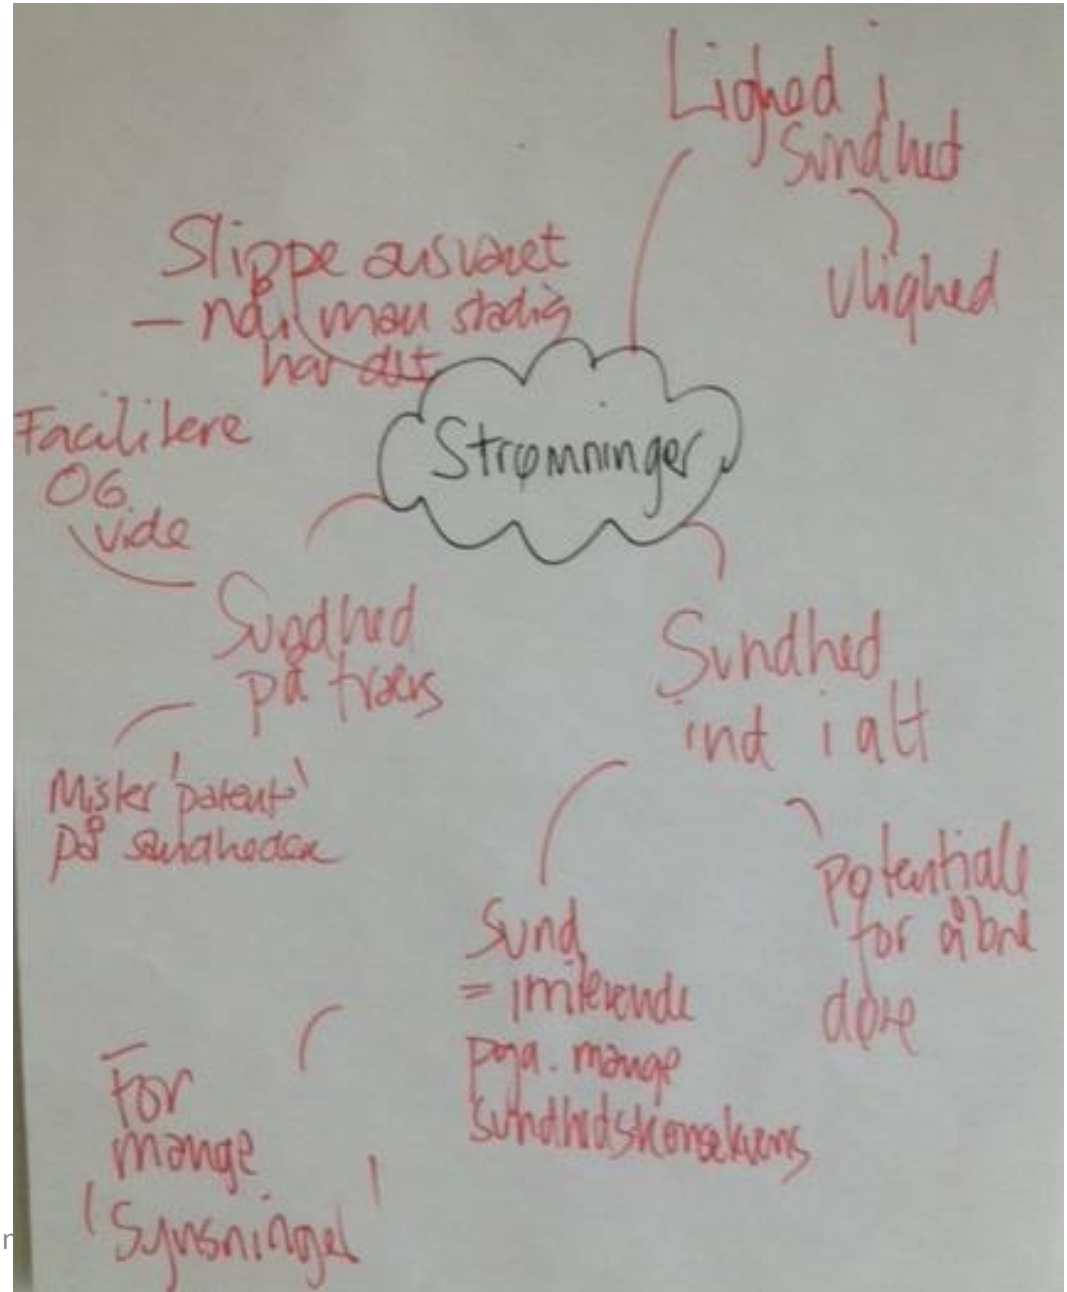 Lighed i
Sundhed
Ulighed
Slippe ansvaret
– når man stadig
har det
Strømninger
Facilitere
OG
vide
Sundhed
på tværs
Mister 'patent'
på sundheden
Sundhed
ind i alt
Potentiale
for åbne
døre
Sund
= irriterende
pga. mange
sundhedskonsekvens
For
mange
'Synsninger'